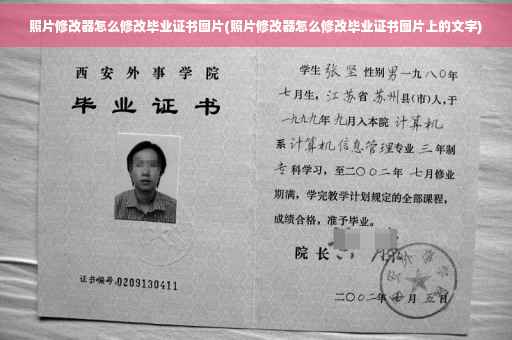 照片修改器怎么修改毕业证书图片(照片修改器怎么修改毕业证书图片上的文字)
西安外事学院
毕业证书
证书编号:0209130411
学生 张坚 性别男 一九八〇年
七月生, 江苏省 苏州县(市)人,于
一九九九年 九月入本院 计算机
系 计算机信息管理专业 三 年制
专 科学习,至二〇〇二年 七月修业
期满,学完教学计划规定的全部课程,
成绩合格,准予毕业。
院长
二〇〇二年 月 五日